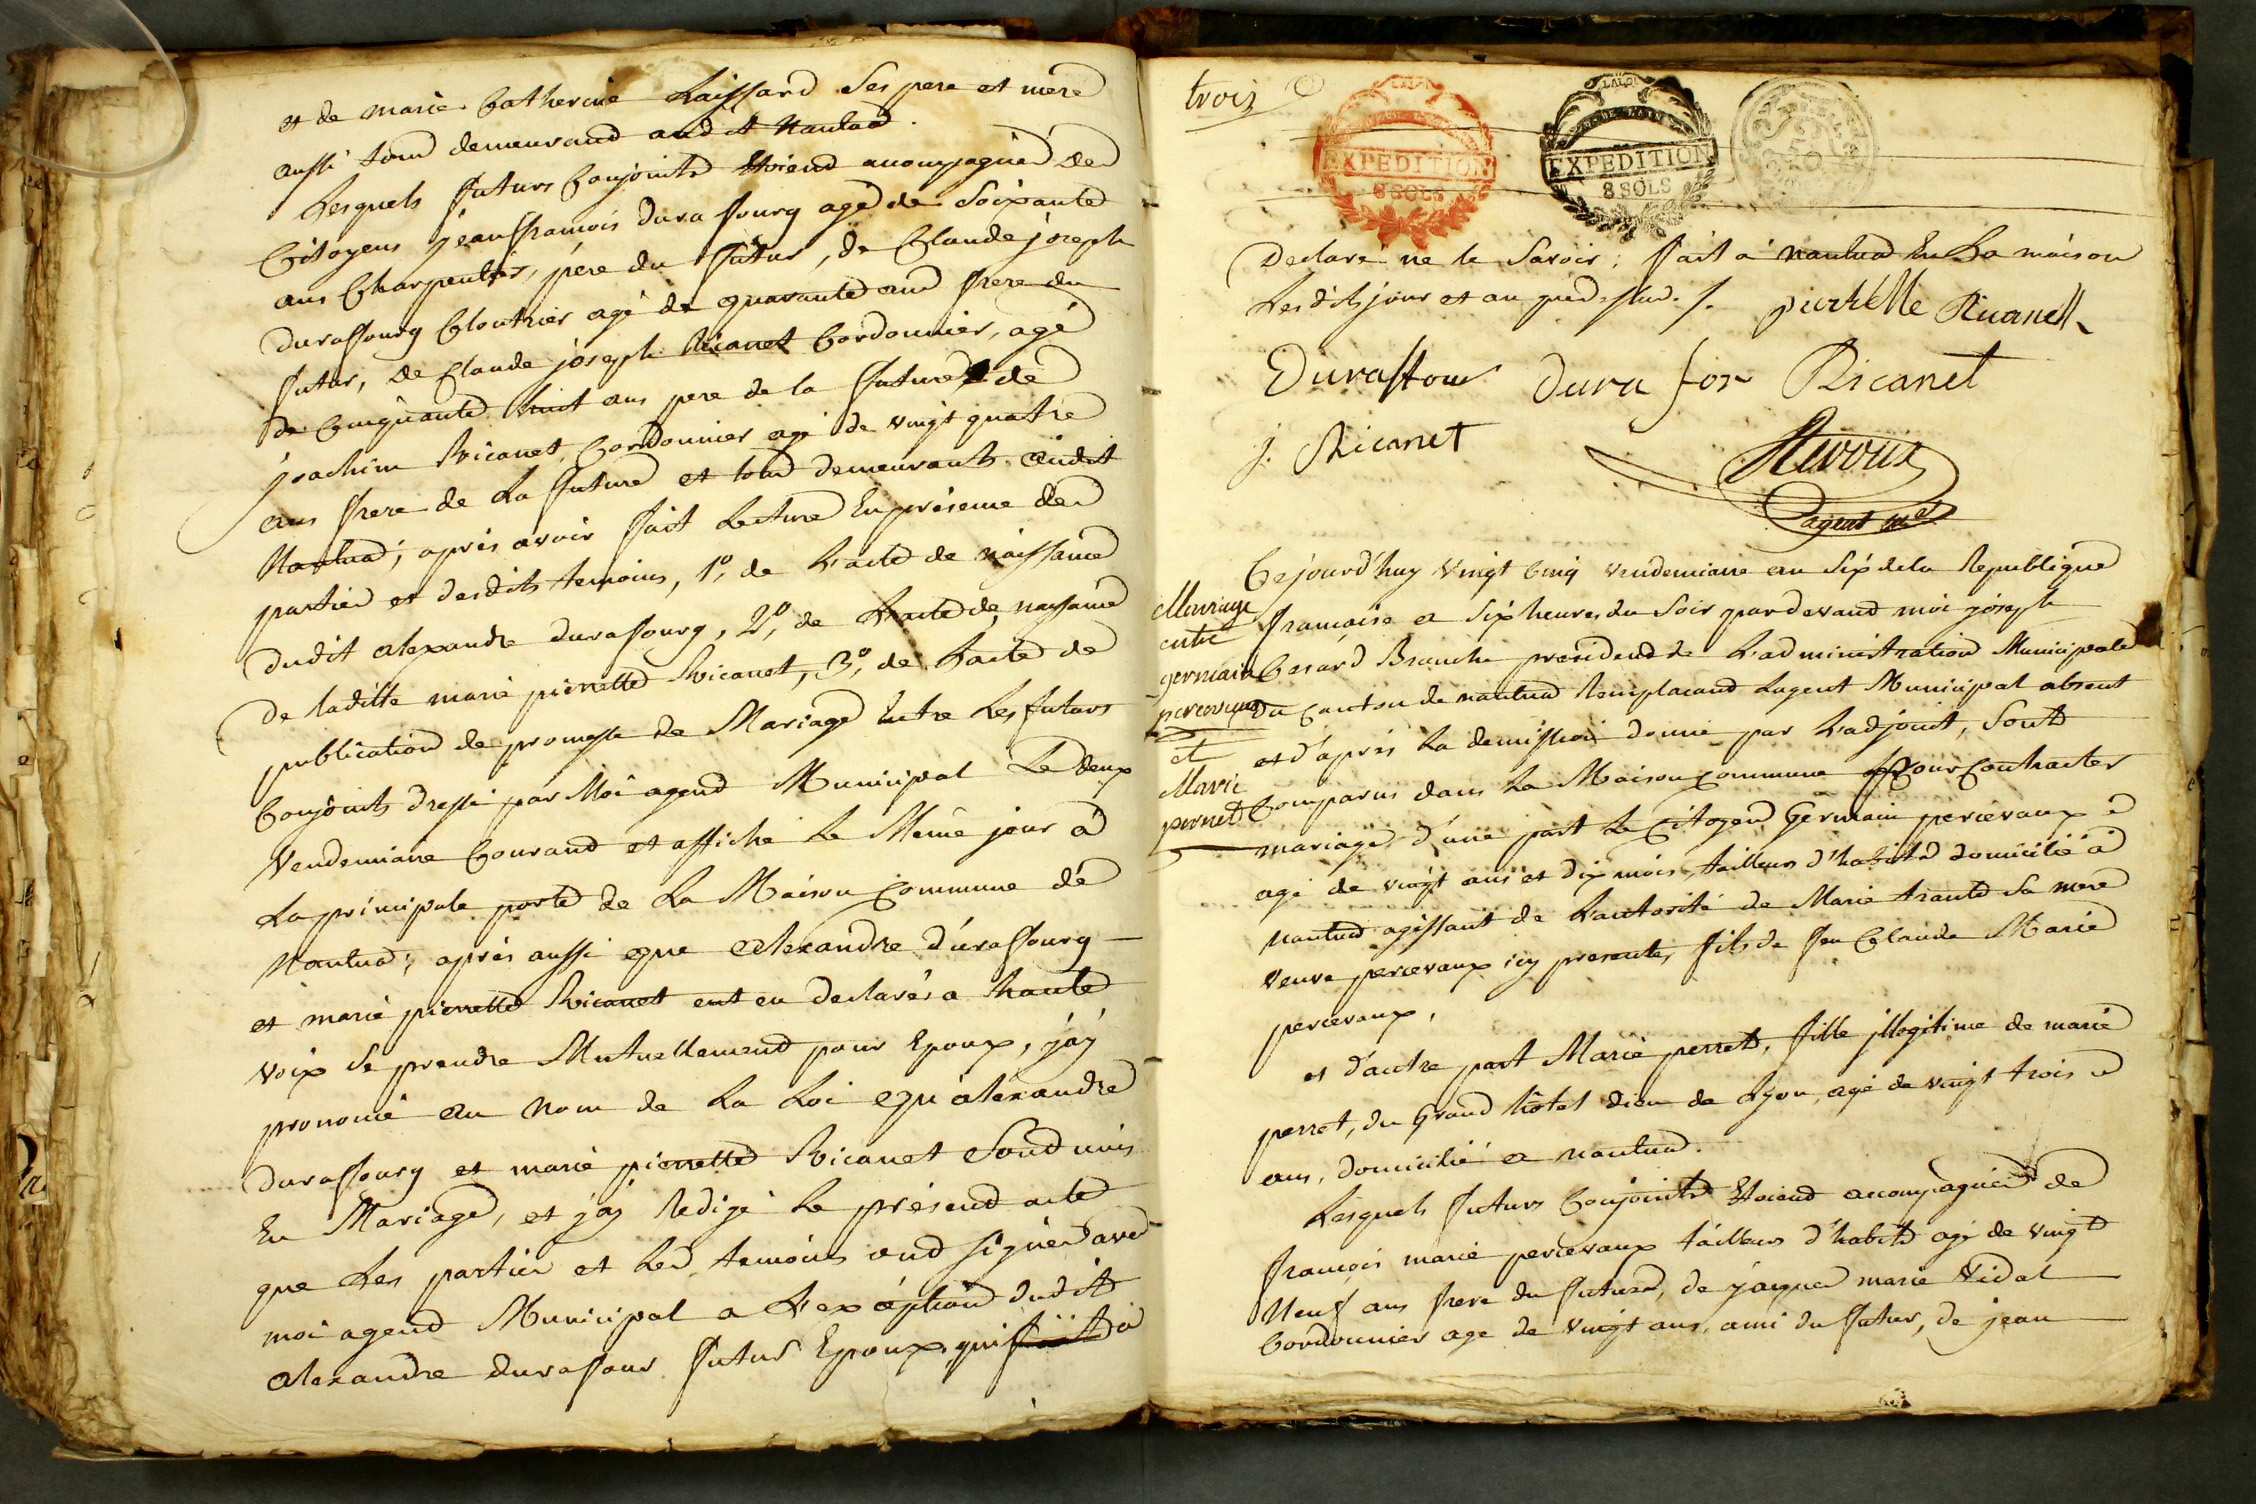 et de marie Catherine Laissard Ses pere et mere
aussi tous demeurand audit Nantua.
Lesquels futurs Conjoints Etoiend acompagnés des
Citoyens jean francois durafourg agé de Soixante
ans Charpentier, père du futur, de Claude joseph
durafourg Cloutrier agé de quarante ans frere du
futur, de Claude joseph Ricanet Cordonnier, agé
de Cinquante huit ans pere de la future de
joachim Ricanet, Cordonnier agé de vingt quatre
ans frere de La future et tous demeurants audit
Nantua; après avoir fait Lecture En présence des
parties et desdits temoins, 1°, de L'acte de naissance
dudit alexandre durafourg, 2°, de L'acte de naissance
de laditte marie pierrette Ricanet, 3°, de L'acte de
publication de promesse de Mariage Entre Les futurs
Conjoints dressé par Moi agend Municipal Le deux
Vendemiaire Courand et affiché Le Même jour à
La principale porte de La Maison Commune de
Nantua; après aussi que alexandre durafourg
et marie pierrette Ricanet ent eu declarés a haute
voix Se prendre Mutuellemend pour Epoux, j'ay
prononcé au Nom de La Loi qu'alexandre
durafourg et marie pierrette Ricanet Sond unis
En Mariage, et j'ay Redigé Le présend acte
que Les parties et Les temoins ond signés avec
moi agend Municipal a L'exception dudit
alexandre durafour futur Epoux, qui fait a
trois
EXPEDITION
8 SOLS
EXPEDITION
8 SOLS
Declaré ne le Savoir; fait a nantua En La maison
Les dits jour et an que dessus ./. pierrette Ricanet
Duraffour dura for Ricanet
J. Ricanet
agent mal
Mariage
entre
germain
percevaux
et
Marie
perret
Cejourd'huy Vingt Cinq vendemiaire an Six de la Republique
francaise a Six heures du Soir pardevand moi joseph
Cesard Brunche presidend de L'administration Municipale
du Canton de nantua Remplacand Lagent Municipal absent
et d'après La demission donné par L'adjoint, Sont
Comparus dans La Maison Commune pour Contracter
mariage d'une part Le Citoyend Germain percevaux
agé de vingt ans et dix mois, tailleurs d'habits domicilié à
Nantua agissant de L'autorité de Marie trante Sa mere
Veuve percevaux icy presente, fils de feu Claude Marie
percevaux,
et d'autre part Marie perret, fille jllegitime de marie
perret, du Grand hôtel dieu de Lyon, agé de vingt trois
ans, domicilié a nantua.
Lesquels futurs Conjoints Etoiend acompagnés de
francois marie percevaux tailleurs d'habits agé de vingt
Neuf ans frere du future, de jacque marie Vidal
Cordonnier age de vingt ans, ami du futur, de jean